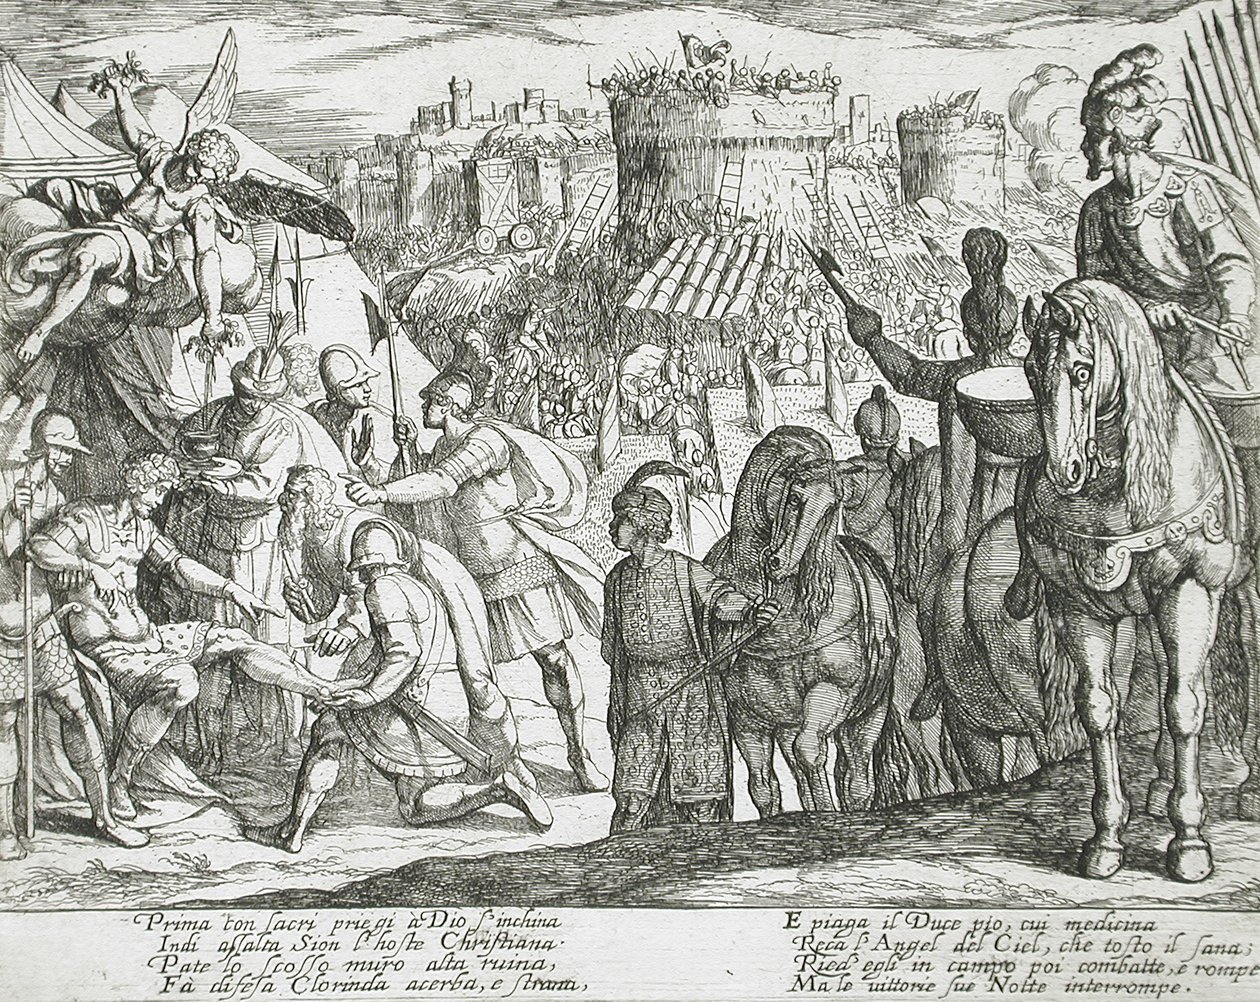 Prima con sacri priegi à Dio s'inchina
Indi assalta Sion l'hoste Christiana.
Pate lo scosso muro alta ruina,
Fà difesa Clorinda acerba, e strana,
E piaga il Duce pio, cui medicina
Reca l'Angel del Ciel, che tosto il sana;
Ried' egli in campo poi combatte, e rompe
Ma le uittorie sue Notte interrompe.